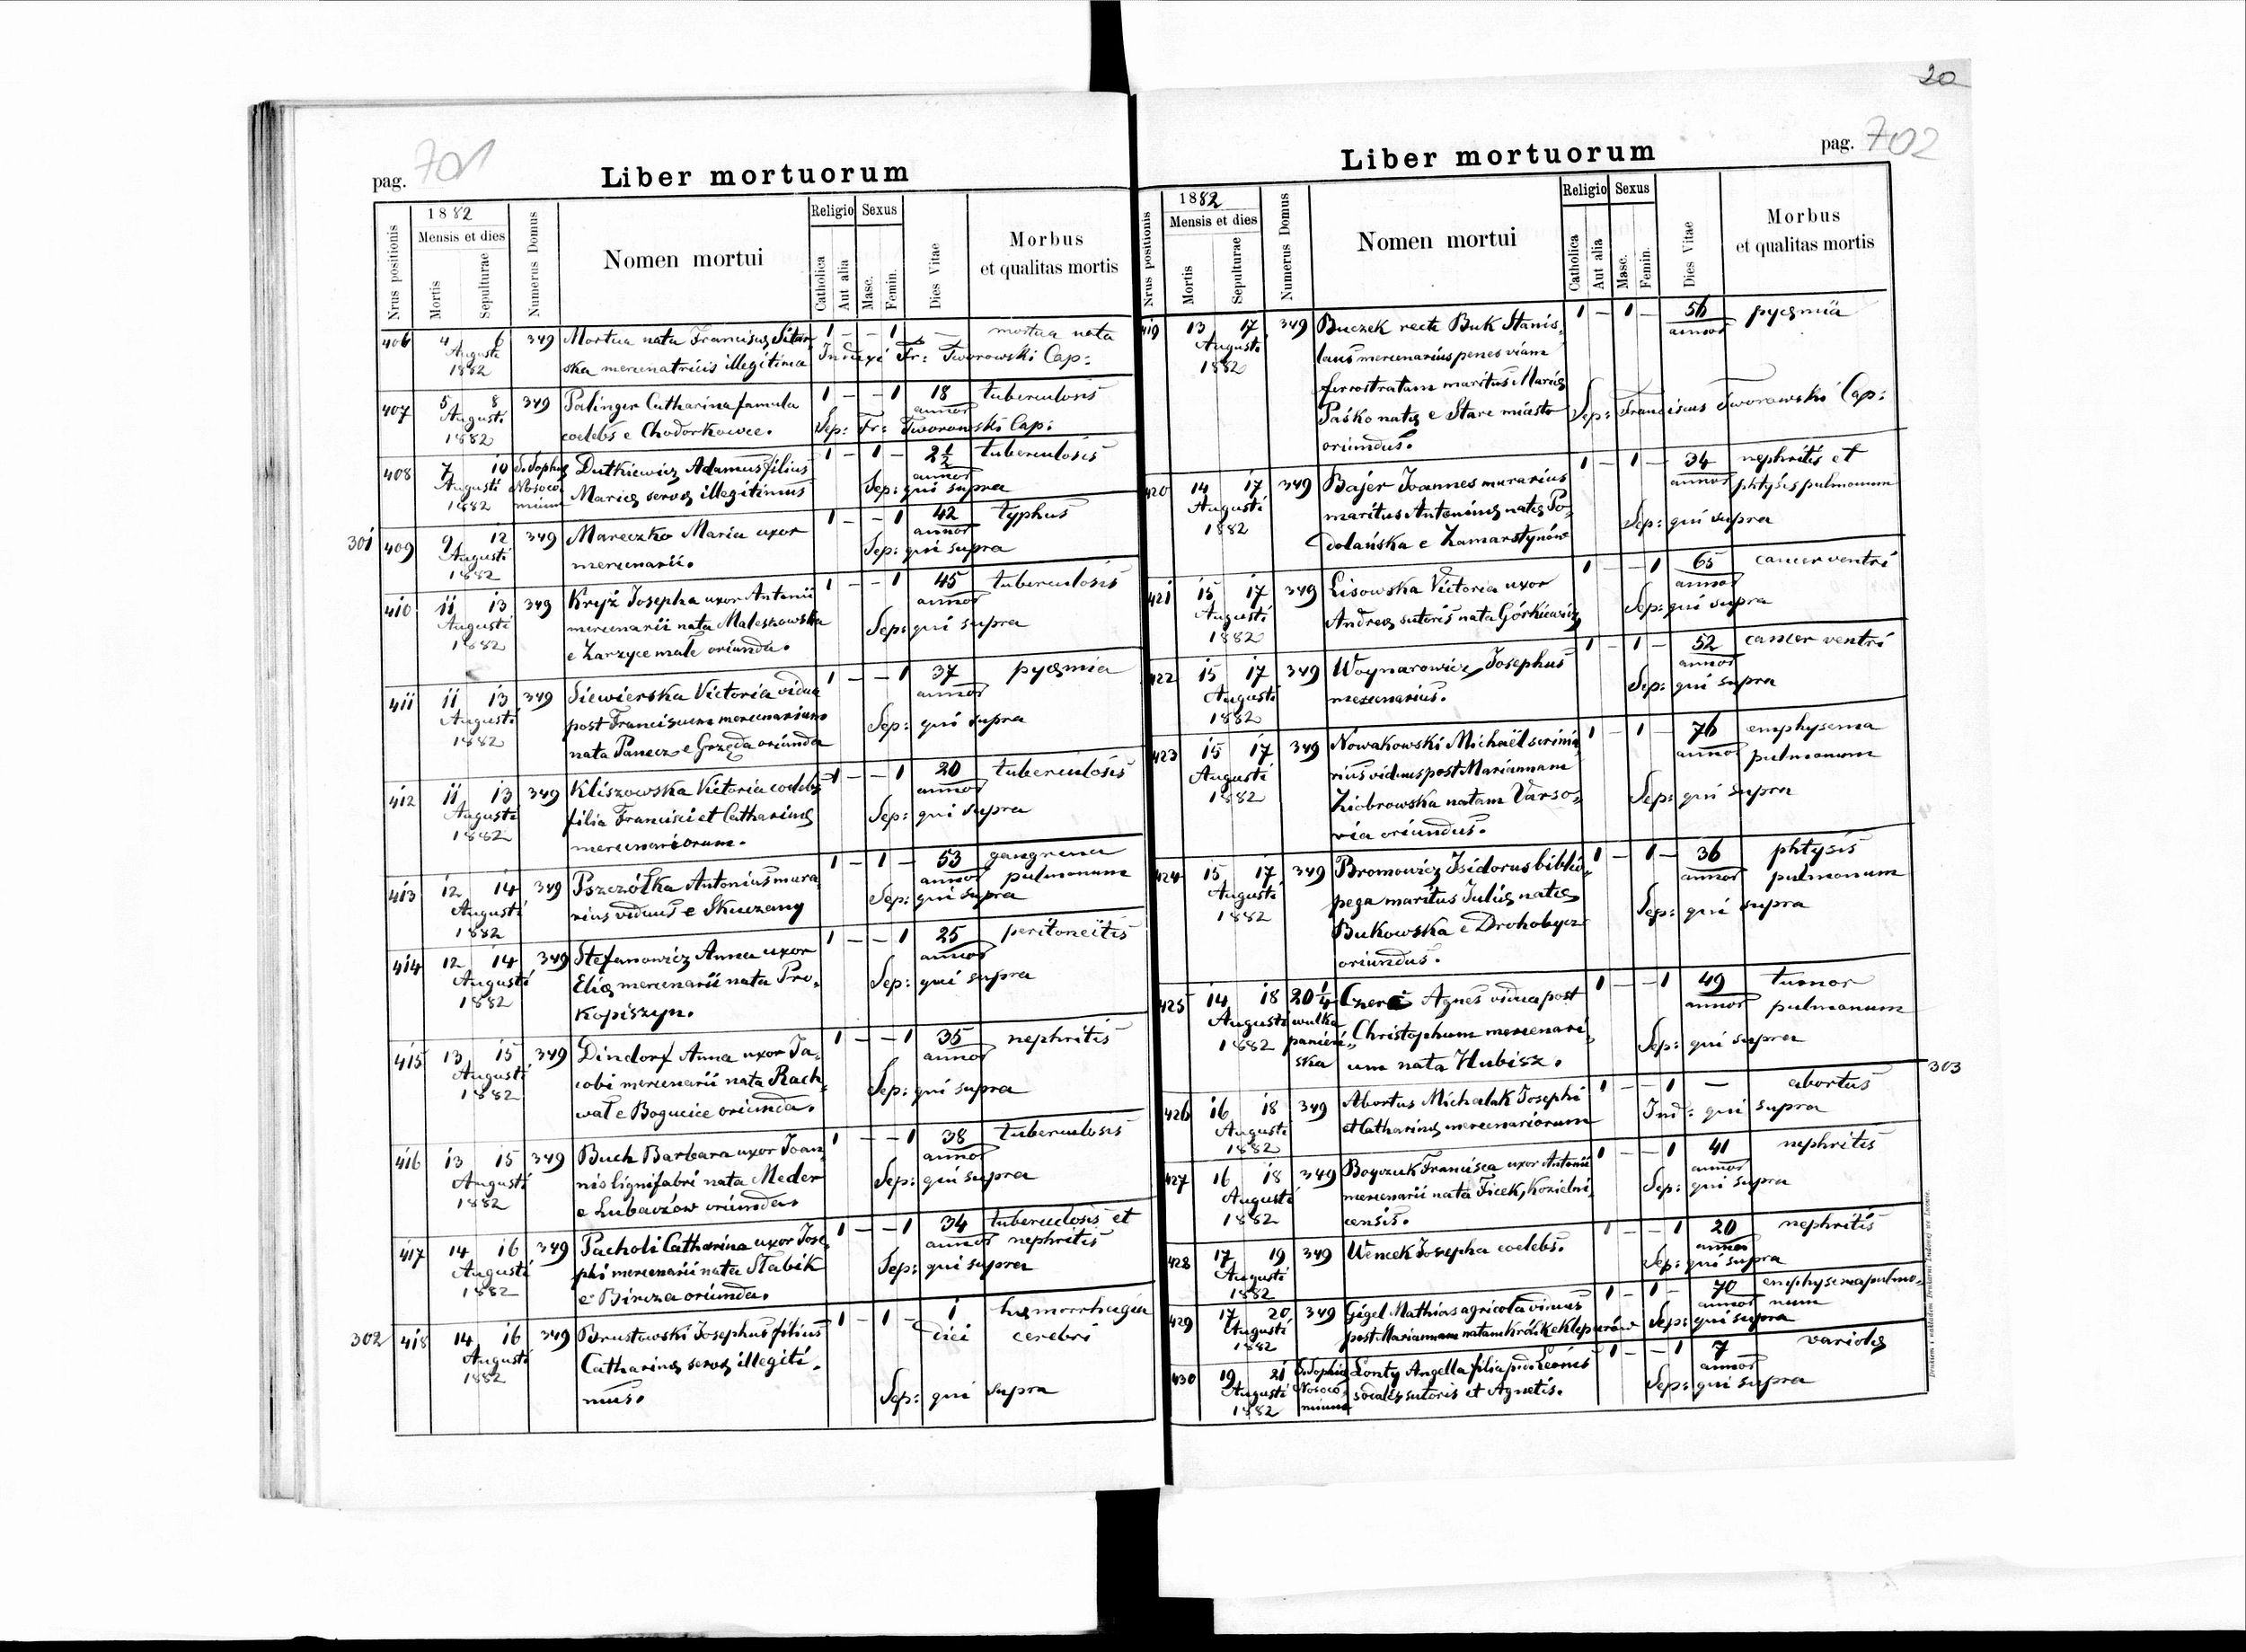 20
pag. 701
Liber mortuorum
Nrus positionis
1882
Mensis et dies
Mortis
Sepulturae
Numerus Domus
Nomen mortui
Religio
Catholica
Aut alia
Sexus
Masc.
Femin.
Dies Vitae
Morbus
et qualitas mortis
406 4 6 349 Mortua nata Francisca Sitar 1 – – 1 – mortua nata
Augusti
1882 ska mercenatricis illegitima Induxi Fr: Tworowski Cap:
407 5 8 349 Palinger Catharina famula 1 – – 1 18 tuberculosis
Augusti annor
1882 coelebs e Chodorkowce. Sep: Fr: Tworowski Cap:
408 7 10 S. Sophiae Dutkiewicz Adamus filius 1 – 1 – 2 1/2 tuberculosis
Augusti Nosoco annor
1882 mium Mariae servae illegitimus Sep: qui supra
301 409 9 12 349 Mareczko Maria uxor 1 – – 1 42 typhus
Augusti annor
1882 mercenarii. Sep: qui supra
410 11 13 349 Kryż Josepha uxor Antonii 1 – – 1 45 tuberculosis
Augusti mercenarii nata Maleszowska annor
1882 e Zarzyce małe oriunda. Sep: qui supra
411 11 13 349 Siewierska Victoria vidua 1 – – 1 37 pyaemia
Augusti post Franciscum mercenarium annor
1882 nata Panecz e Grzęda oriunda Sep: qui supra
412 11 13 349 Kliszowska Victoria coelebs 1 – – 1 20 tuberculosis
Augusti filia Francisci et Catharinae annor
1882 mercenariorum. Sep: qui supra
413 12 14 349 Pszczółka Antonius mura 1 – 1 – 53 gangrena
Augusti annor pulmonum
1882 rius viduus e Skniczany Sep: qui supra
414 12 14 349 Stefanowicz Anna uxor 1 – – 1 25 peritoneitis
Augusti Eliae mercenarii nata Pro, annor
1882 kopiszyn. Sep: qui supra
415 13 15 349 Dindorf Anna uxor Ja, 1 – – 1 35 nephritis
Augusti cobi mercenarii nata Rach, annor
1882 wał e Bogucice oriunda. Sep: qui supra
416 13 15 349 Buch Barbara uxor Joan, 1 – – 1 38 tuberculosis
Augusti nis lignifabri nata Meder annor
1882 e Lubaczów oriunda. Sep: qui supra
417 14 16 349 Pacholi Catharina uxor Jose, 1 – – 1 34 tuberculosis et
Augusti phi mercenarii nata Stabik annor nephritis
1882 e Bircza oriunda. Sep: qui supra
302 418 14 16 349 Brustowski Josephus filius 1 – 1 – 1 haemorrhagia
Augusti Catharinae servae illegiti, diei cerebri
1882 mus. Sep: qui supra
pag. 702
Liber mortuorum
Nrus positionis
1882
Mensis et dies
Mortis
Sepulturae
Numerus Domus
Nomen mortui
Religio
Catholica
Aut alia
Sexus
Masc.
Femin.
Dies Vitae
Morbus
et qualitas mortis
419 13 17 349 Buczek recte Buk Stanis, 1 – 1 – 56 pyaemia
Augusti laus mercenarius penes viam annor
1882 ferrostratam maritus Mariae
Paśko natae e Stare miasto Sep: Franciscus Tworowski Cap:
oriundus.
420 14 17 349 Bajer Joannes murarius 1 – 1 – 34 nephritis et
Augusti maritus Antoninae natae Po, annor phtysis pulmonum
1882 dolańska e Zamarstynów Sep: qui supra
421 15 17 349 Lisowska Victoria uxor 1 – – 1 65 cancer ventri
Augusti annor
1882 Andreae sutoris nata Górkiewicz, Sep: qui supra
422 15 17 349 Woynarowicz Josephus 1 – 1 – 52 cancer ventri
Augusti annor
1882 mercenarius. Sep: qui supra
423 15 17 349 Nowakowski Michaël scrinia 1 – 1 – 76 emphysema
Augusti rius viduus post Mariannam annor pulmonum
1882 Ziobrowska natam Varso, Sep: qui supra
via oriundus.
424 15 17 349 Bromowicz Isidorus biblio, 1 – 1 – 36 phtysis
Augusti pega maritus Juliae natae annor pulmonum
1882 Bukowska e Drohobycz Sep: qui supra
oriundus.
425 14 18 20 1/4 Agnes vidua post 1 – – 1 49 tumor
Augusti wulka Christophum mercenari, annor pulmonum
1882 panień,, ska um nata Hubisz. Sep: qui supra
303
426 16 18 349 Abortus Michalak Josephi 1 – – 1 – abortus
Augusti
1882 et Catharinae mercenariorum Ind: qui supra
427 16 18 349 Boyczuk Francisca uxor Antonii 1 – – 1 41 nephritis
Augusti mercenarii nata Ficek, Kozielni, annor
1882 censis. Sep: qui supra
428 17 19 349 Wencek Josepha coelebs. 1 – – 1 20 nephritis
Augusti annor
1882 Sep: qui supra
429 17 20 349 Gigel Mathias agricola viduus 1 – 1 – 70 emphysema pulmo,
Augusti annor num
1882 post Mariannam natam Królik e Kleparów Sep: qui supra
430 19 21 S. Sophiae Lonty Angella filia Leonis 1 – – 1 7 variolae
Augusti Nosoco annor
1882 mium sodalis sutoris et Agnetis. Sep: qui supra